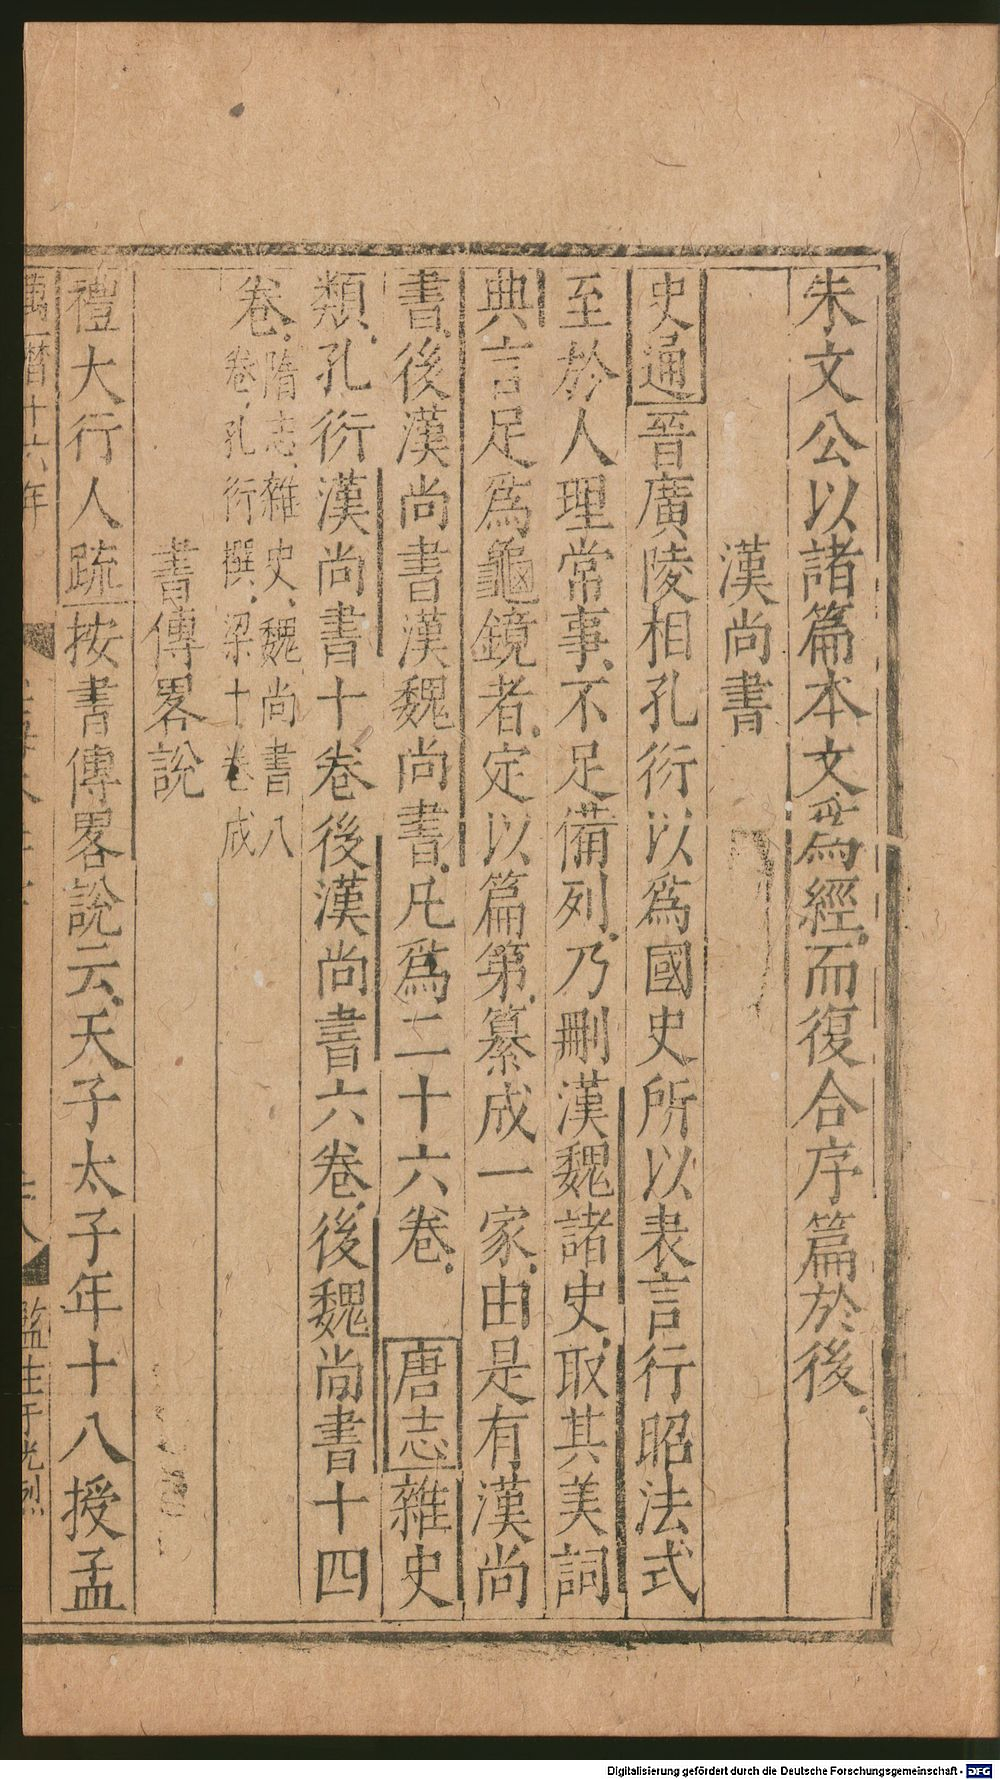 朱文公以諸篇本文並爲經而復合序篇於後
漢尚書
史通晉廣陵相孔衍以爲國史所以表言行昭法式
至於人理常事不足備列乃刪漢魏諸史取其美詞
典言足爲龜鏡者定以篇第纂成一家由是有漢尚
書後漢尚書漢魏尚書凡爲二十六卷唐志雜史
類孔衍漢尚書十卷後漢尚書六卷後魏尚書十四
卷隋志雜史魏尚書八
卷孔衍撰梁十卷成
書傳畧說
禮大行人疏按書傳畧說云天子太子年十八授孟
萬曆十六年
監生于光烈
Digitalisierung gefördert durch die Deutsche Forschungsgemeinschaft - DFG